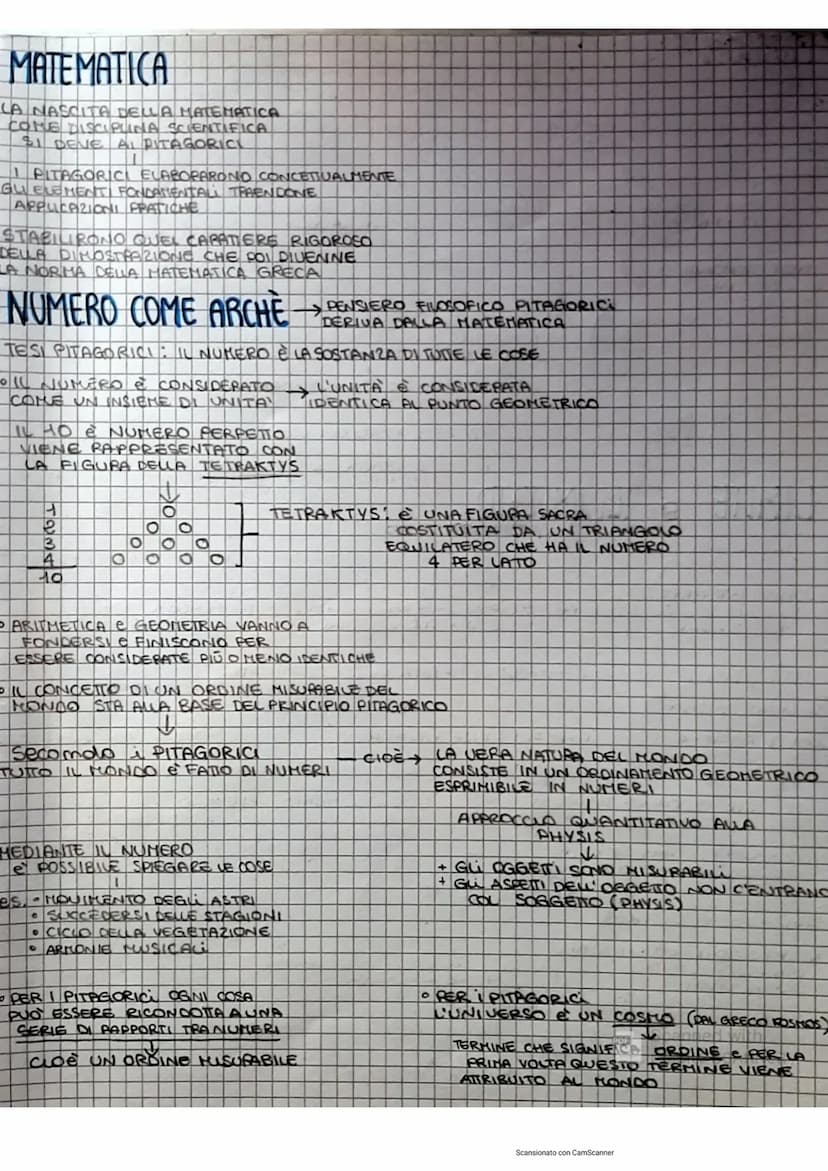 MATEMATICA
LA NASCITA DELLA MATEMATICA
COME DISCIPLINA SCIENTIFICA
SI DEVE AI PITAGORICI
I PITAGORICI ELABORARONO CONCETUALMENTE
GLI ELEMENTI FONDAMENTALI TRAENDONE
APPLICAZIONI PRATICHE
STABILIRONO QUEL CARATTERE RIGOROSO
DELLA DIMOSTRAZIONE CHE POI DIVENNE
LA NORMA DELLA MATEMATICA GRECA
NUMERO COME ARCHÈ → PENSIERO FILOSOFICO PITAGORICI
DERIVA DALLA MATEMATICA
TESI PITAGORICI: IL NUMERO È LA SOSTANZA DI TUTTE LE COSE
• IL NUMERO È CONSIDERATO → L'UNITÀ È CONSIDERATA
COME UN INSIEME DI UNITA' IDENTICA AL PUNTO GEOMETRICO
IL 10 È NUMERO PERFETTO
VIENE RAPPRESENTATO CON
LA FIGURA DELLA TETRAKTYS
1
2
3
4
10
TETRAKTYS: È UNA FIGURA SACRA
COSTITUITA DA UN TRIANGOLO
EQUILATERO CHE HA IL NUMERO
4 PER LATO
• ARITMETICA E GEOMETRIA VANNO A
FONDERSI E FINISCONO PER
ESSERE CONSIDERATE PIÙ O MENO IDENTICHE
• IL CONCETTO DI UN ORDINE MISURABILE DEL
MONDO STA ALLA BASE DEL PRINCIPIO PITAGORICO
Secondo i PITAGORICI
TUTTO IL MONDO È FATTO DI NUMERI
— CIOÈ → LA VERA NATURA DEL MONDO
CONSISTE IN UN ORDINAMENTO GEOMETRICO
ESPRIMIBILE IN NUMERI
APPROCCIO QUANTITATIVO ALLA
PHYSIS
+ GLI OGGETTI SONO MISURABILI
+ GLI ASPETTI DELL'OGGETTO NON C'ENTRANO
COL SOGGETTO (PHYSIS)
MEDIANTE IL NUMERO
È POSSIBILE SPIEGARE LE COSE
es. • MOVIMENTO DEGLI ASTRI
• SUCCEDERSI DELLE STAGIONI
• CICLO DELLA VEGETAZIONE
• ARMONIE MUSICALI
• PER I PITAGORICI OGNI COSA
PUÒ ESSERE RICONDOTTA A UNA
SERIE DI RAPPORTI TRA NUMERI
CIOÈ UN ORDINE MISURABILE
• PER i PITAGORICI
L'UNIVERSO È UN COSMO (DAL GRECO KOSMOS)
TERMINE CHE SIGNIFICA ORDINE e PER LA
PRIMA VOLTA QUESTO TERMINE VIENE
ATTRIBUITO AL MONDO
Scansionato con CamScanner